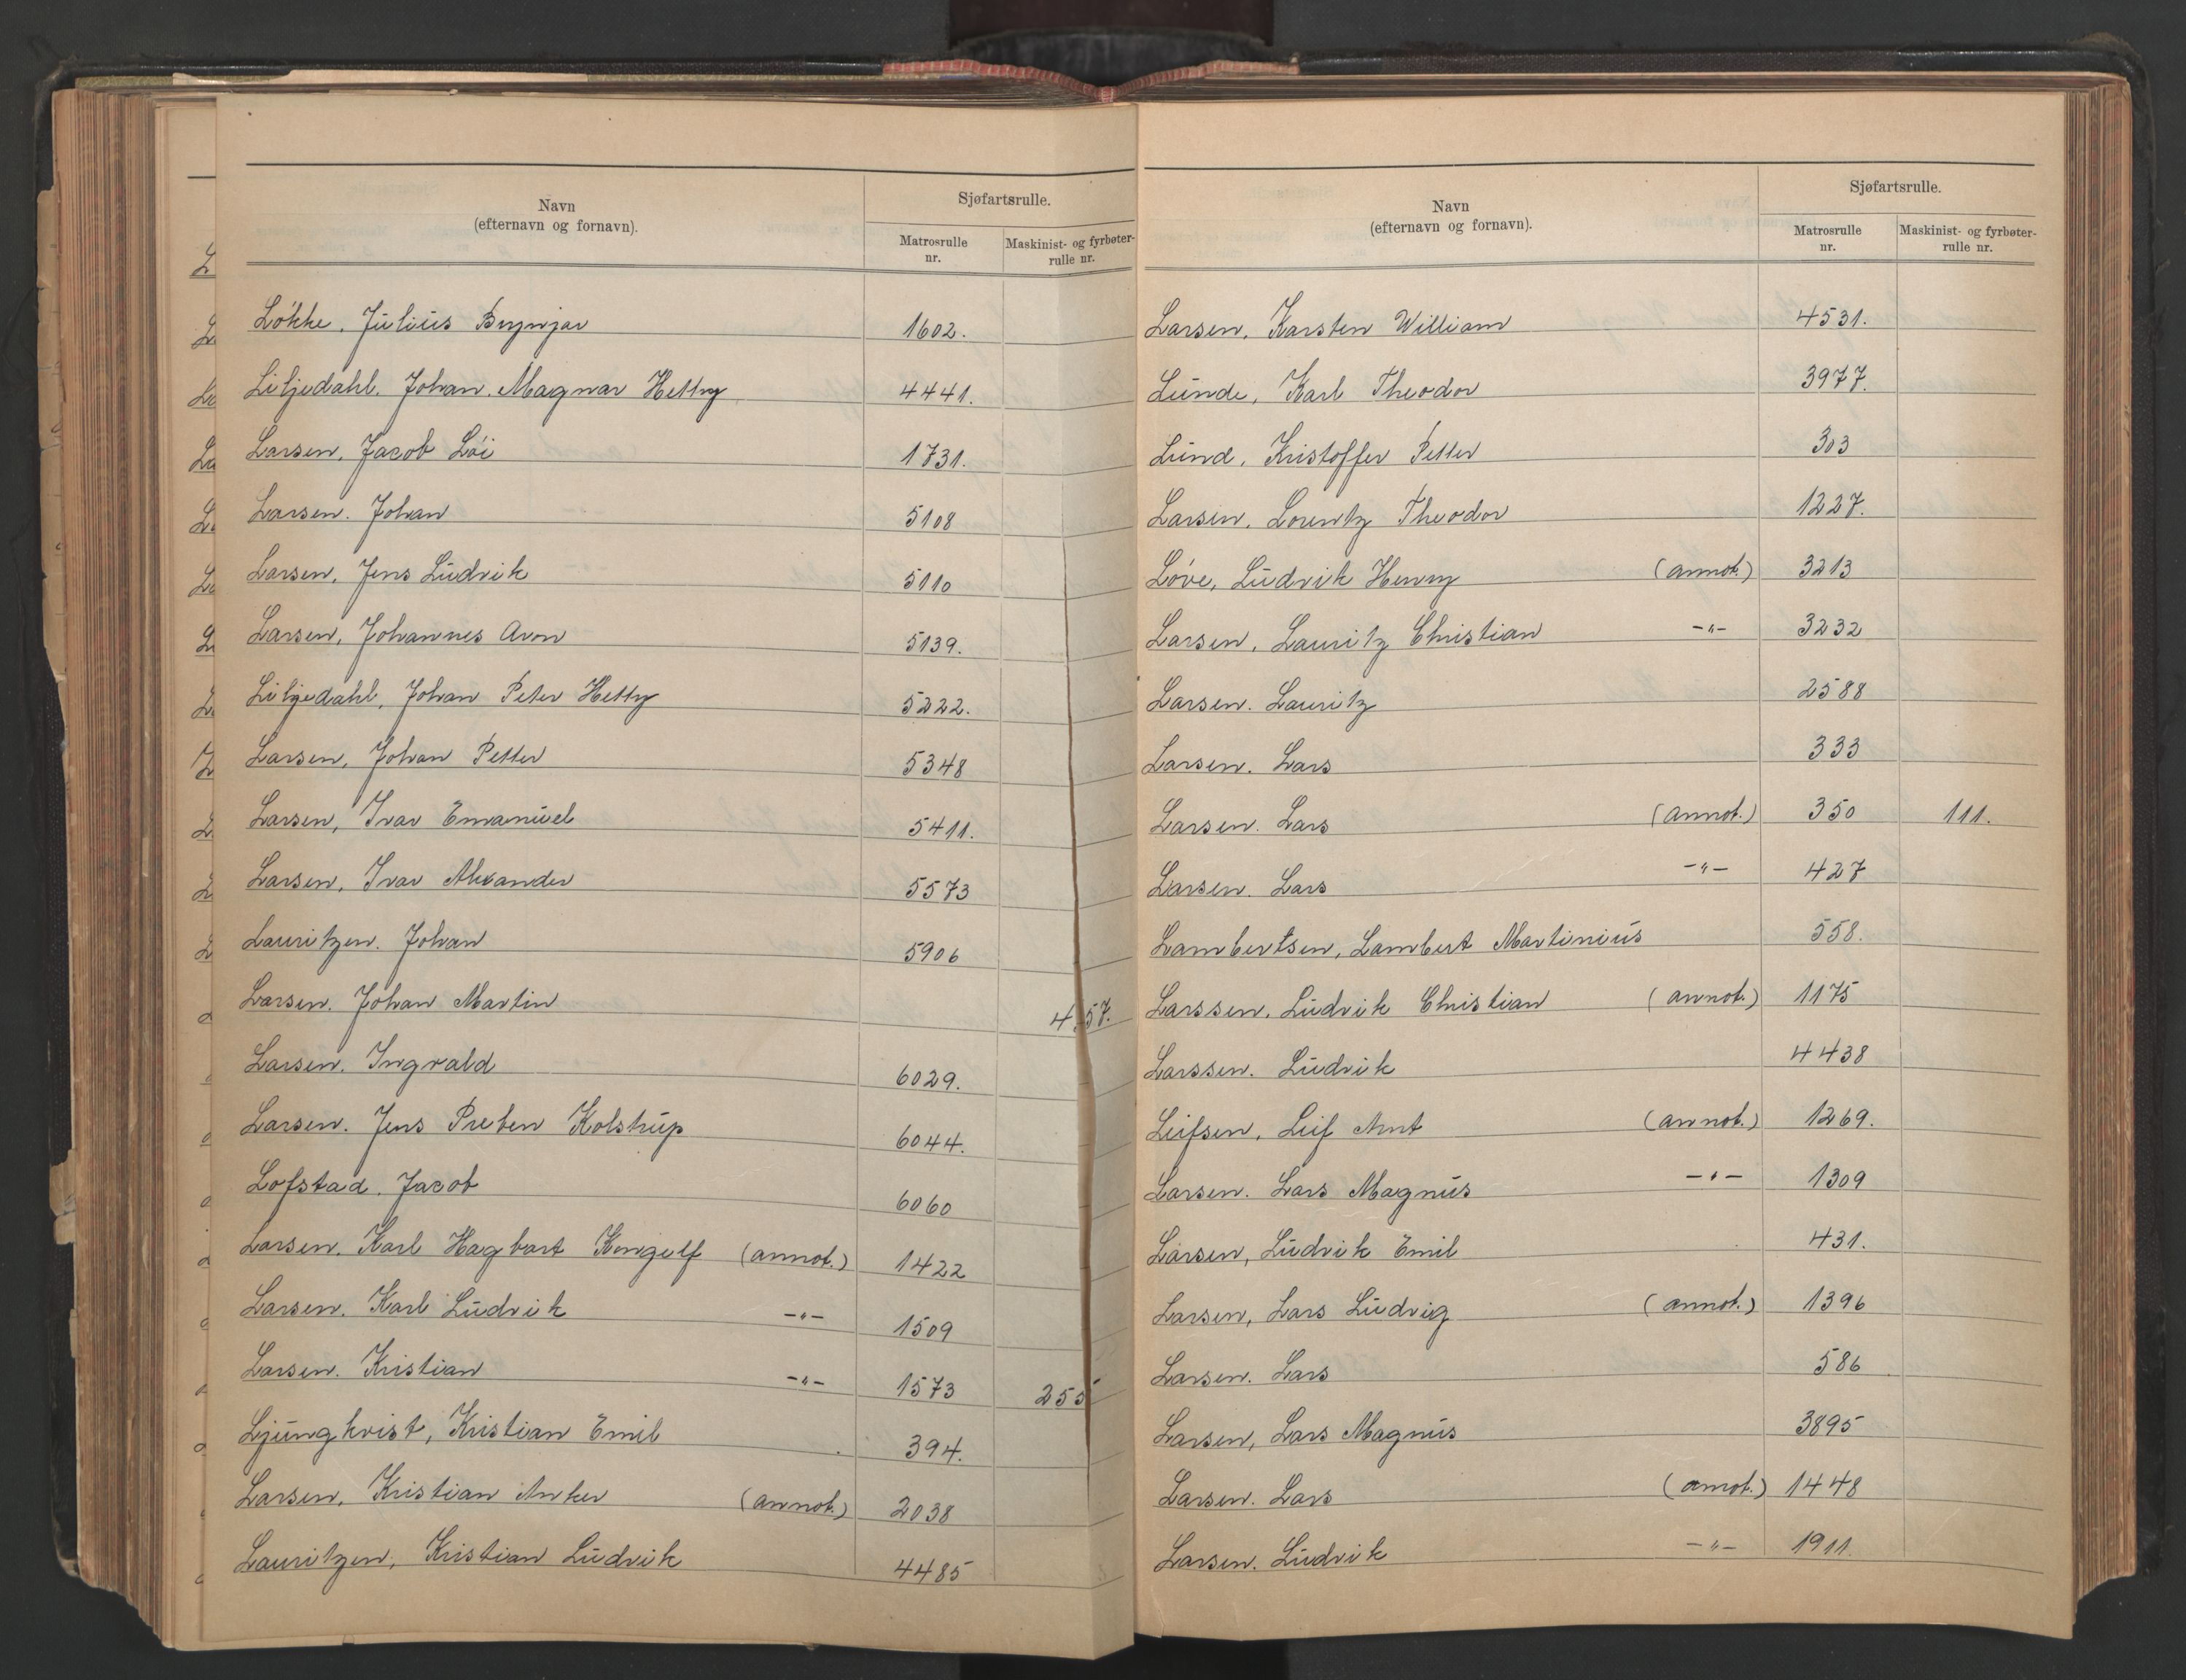 Navn
(efternavn og fornavn).
Sjøfartsrulle.
Matrosrulle nr.
Maskinist- og fyrbøter-rulle nr.
Løkke, Julius Brynjar 1602.
Liljedahl, Johan Magnar Hetty 4441.
Larsen, Jacob Löi 1731.
Larsen. Johan 5108
Larsen, Jens Ludvik 5110
Larsen, Johannes Aron 5139.
Liljedahl, Johan Peter Hetty 5222.
Larsen, Johan Petter 5348
Larsen, Ivar Emanuel 5411.
Larsen, Ivar Alexander 5573
Lauritzen. Johan 5906
Larsen. Johan Martin 457.
Larsen. Ingvald 6029.
Larsen. Jens Preben Kolstrup 6044.
Lofstad. Jacob 6060
Larsen. Karl Hagbart (annot.) 1422
Larsen. Karl Ludvik -"- 1509
Larsen. Kristian -"- 1573 255
Ljungkvist, Kristian Emil 394.
Larsen, Kristian Anker (annot.) 2038
Lauritzen, Kristian Ludvik 4485
Navn
(efternavn og fornavn).
Sjøfartsrulle.
Matrosrulle nr.
Maskinist- og fyrbøter-rulle nr.
Larsen, Karsten William 4531.
Lunde, Karl Theodor 3977.
Lund, Kristoffer Petter 303
Larsen, Lorentz Theodor 1227.
Løve, Ludvik Henry (annot.) 3213
Larsen, Lauritz Christian -"- 3232
Larsen. Lauritz 2588
Larsen. Lars 333
Larsen. Lars (annot.) 350 111.
Larsen. Lars -"- 427
Lambertsen, Lambert Martinius 558.
Larssen, Ludvik Christian (annot.) 1175
Larssen. Ludvik 4438
Leifsen, Leif Arnt (annot.) 1269.
Larsen. Lars Magnus -"- 1309
Larsen, Ludvik Emil 431.
Larsen, Lars Ludvig (annot.) 1396
Larsen. Lars 586
Larsen, Lars Magnus 3895
Larsen. Lars (annot.) 1448
Larsen. Ludvik -"- 1911.